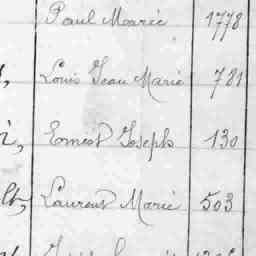 Paul Marie 1778
Louis Jean Marie 781
Ernest Joseph 130
Laurent Marie 503